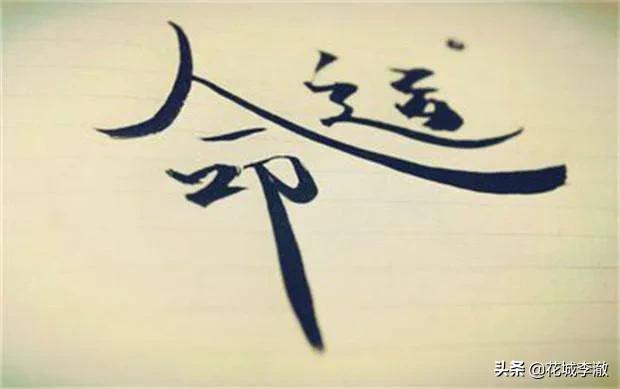 命运
头条 @花城李澈